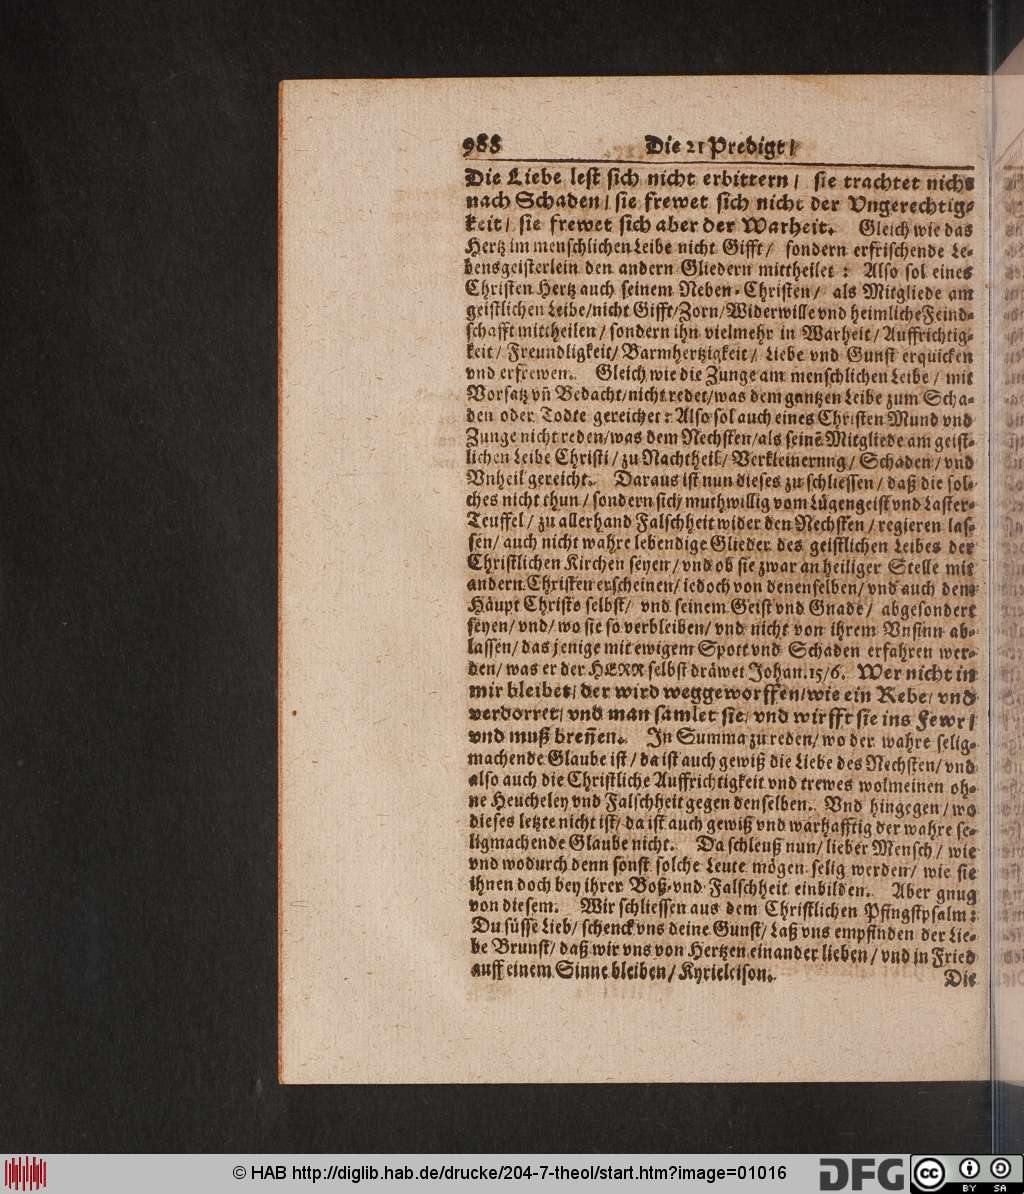 988 Die 21 Predigt /
Die Liebe lest sich nicht erbittern / sie trachtet nicht
nach Schaden / sie frewet sich nicht der Vngerechtig-
keit / sie frewet sich aber der Warheit. Gleich wie das
Hertz im menschlichen Leibe nicht Gifft / sondern erfrischende Le-
bensgeisterlein den andern Gliedern mittheilet : Also sol eines
Christen Hertz auch seinem Neben-Christen / als Mitgliede am
geistlichen Leibe / nicht Gifft / Zorn / Widerwille vnd heimliche Feind-
schafft mittheilen / sondern ihn vielmehr in Warheit / Auffrichtig-
keit / Freundligkeit / Barmhertzigkeit / Liebe vnd Gunst erquicken
vnd erfrewen. Gleich wie die Zunge am menschlichen Leibe / mit
Vorsatz vñ Bedacht / nicht redet / was dem gantzen Leibe zum Scha-
den oder Todte gereichet : Also sol auch eines Christen Mund vnd
Zunge nicht reden / was dem Nechsten / als seinẽ Mitgliede am geist-
lichen Leibe Christi / zu Nachtheil / Verkleinerung / Schaden / vnd
Vnheil gereicht. Daraus ist nun dieses zu schliessen / daß die sol-
ches nicht thun / sondern sich muthwillig vom Lügengeist vnd Laster-
Teuffel / zu allerhand Falschheit wider den Nechsten / regieren las-
sen / auch nicht wahre lebendige Glieder des geistlichen Leibes der
Christlichen Kirchen seyen / vnd ob sie zwar an heiliger Stelle mit
andern Christen erscheinen / iedoch von denenselben / vnd auch dem
Häupt Christo selbst / vnd seinem Geist vnd Gnade / abgesondert
seyen / vnd / wo sie so verbleiben / vnd nicht von ihrem Vnsinn ab-
lassen / das jenige mit ewigem Spott vnd Schaden erfahren wer-
den / was er der HERR selbst dräwet Johan. 15/6. Wer nicht in
mir bleibet / der wird weggeworffen / wie ein Rebe / vnd
verdorret / vnd man samlet sie / vnd wirfft sie ins Fewr /
vnd muß breñen. In Summa zu reden / wo der wahre selig-
machende Glaube ist / da ist auch gewiß die Liebe des Nechsten / vnd
also auch die Christliche Auffrichtigkeit vnd trewes wolmeinen oh-
ne Heucheley vnd Falschheit gegen denselben. Vnd hingegen / wo
dieses letzte nicht ist / da ist auch gewiß vnd warhafftig der wahre se-
ligmachende Glaube nicht. Da schleuß nun / lieber Mensch / wie
vnd wodurch denn sonst solche Leute mögen selig werden / wie sie
ihnen doch bey ihrer Boß- vnd Falschheit einbilden. Aber gnug
von diesem. Wir schliessen aus dem Christlichen Pfingstpsalm :
Du süsse Lieb / schenck vns deine Gunst / Laß vns empfinden der Lie-
be Brunst / daß wir vns von Hertzen einander lieben / vnd in Fried
auff einem Sinne bleiben / Kyrieleison.
Die
© HAB http://diglib.hab.de/drucke/204-7-theol/start.htm?image=01016
DFG
cc BY SA